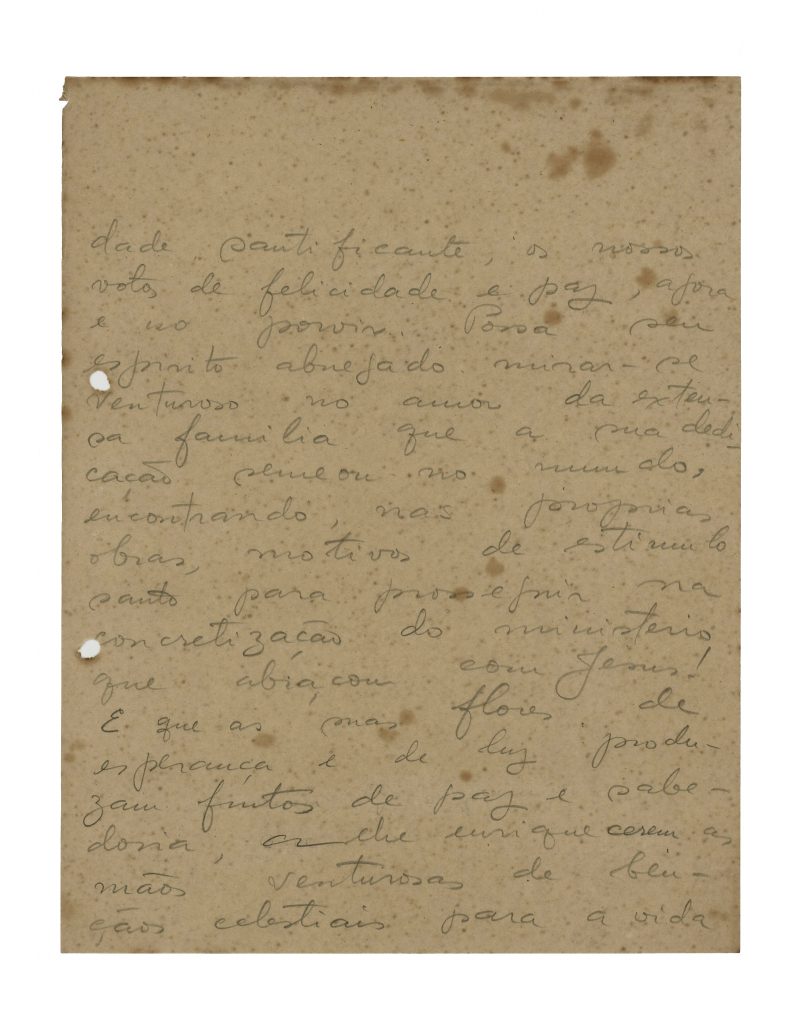 dade santificante, os nossos
votos de felicidade e paz, agora
e no porvir. Possa seu
espirito abnegado mirar-se
venturoso no amor da exten-
sa familia que a sua dedi-
cação semeou no mundo,
encontrando, nas proprias
obras, motivos de estimulo
santo para prosseguir na
concretização do ministerio
que abraçou com Jesus!
E que as suas flores de
esperança e de luz produ-
zam frutos de paz e sabe-
doria, a lhe enriquecerem as
mãos venturosas de bên-
çãos celestiais para a vida